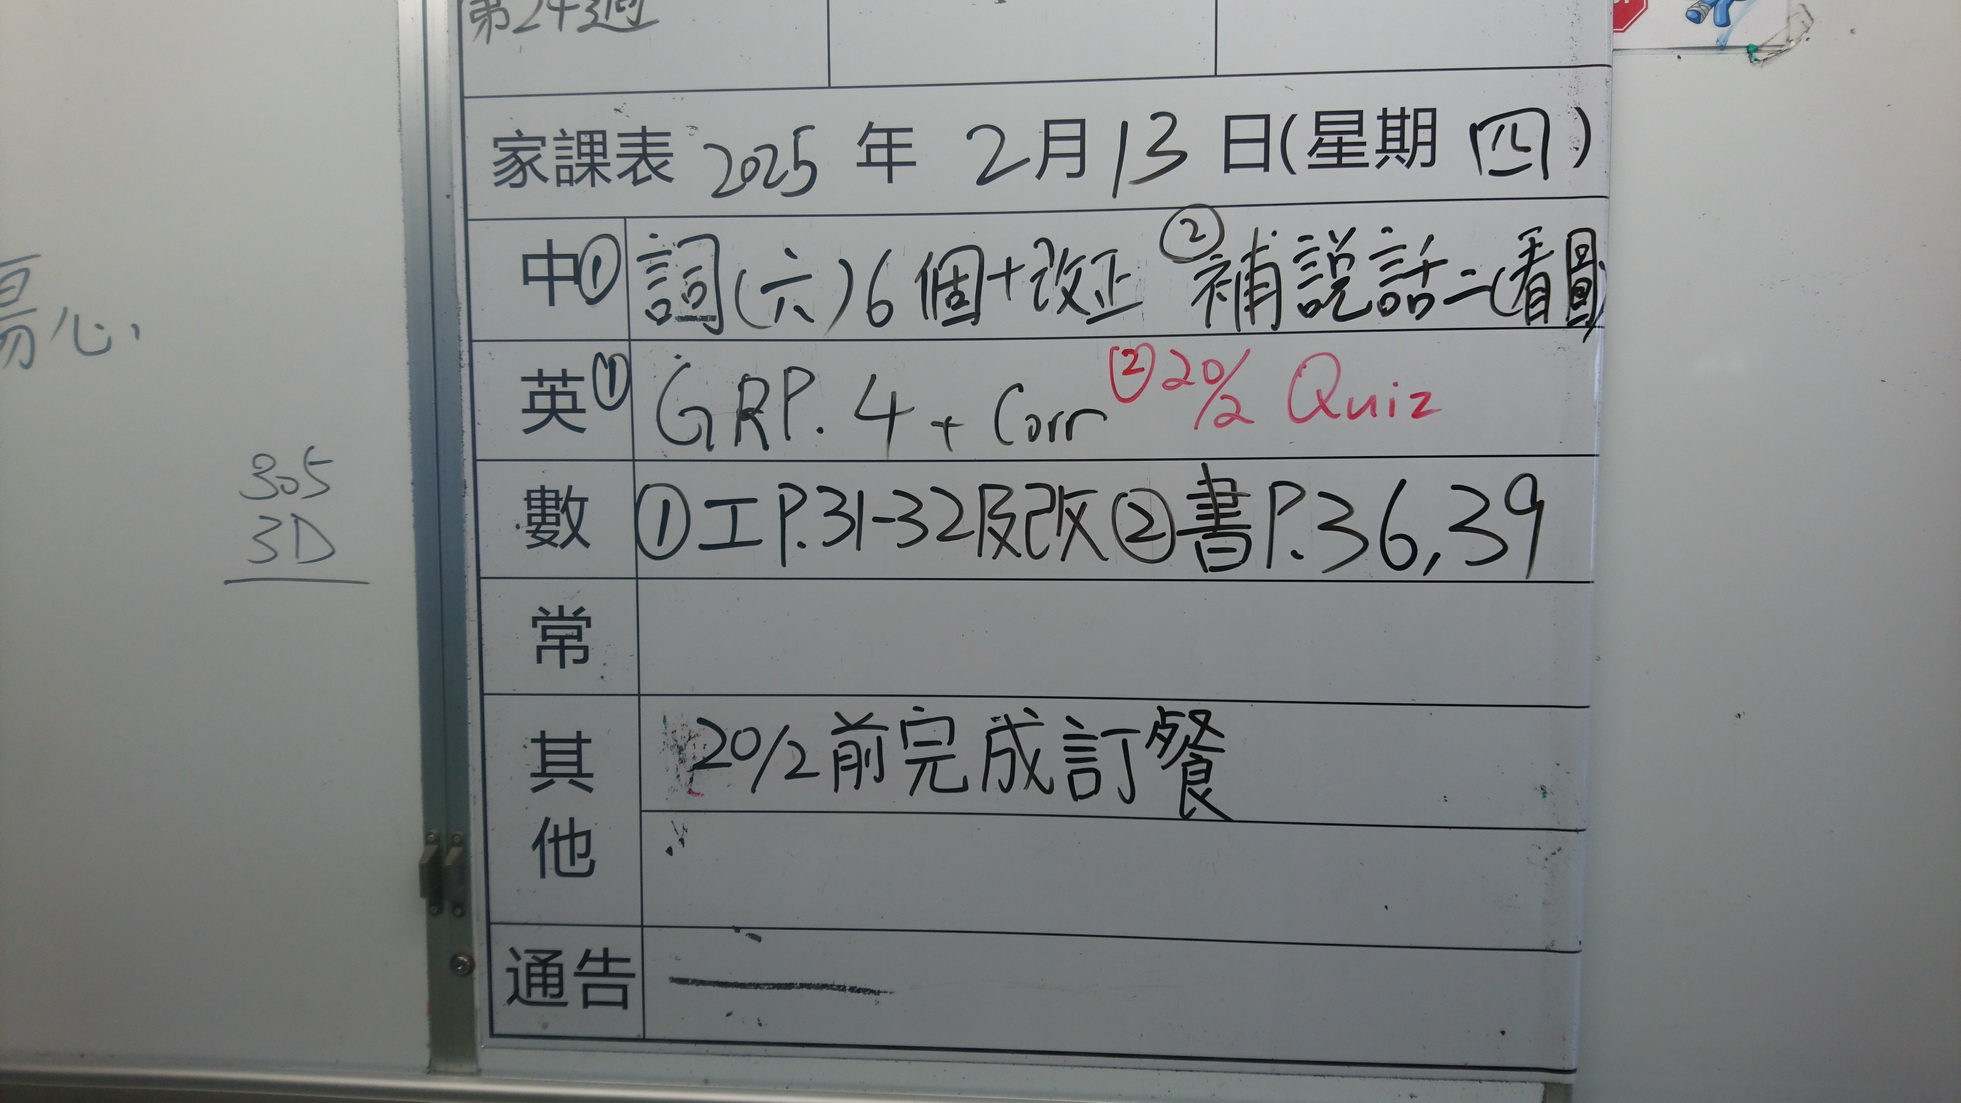 第24週
家課表 2025 年 2月13日(星期 四)
中① 詞(六)6個+改正 ②補説話二(看圖)
英① GRP. 4 + Corr ②20/2 Quiz
數 ①工P.31-32及改②書P.36,39
常
其他 20/2前完成訂餐
通告
心
305
3D